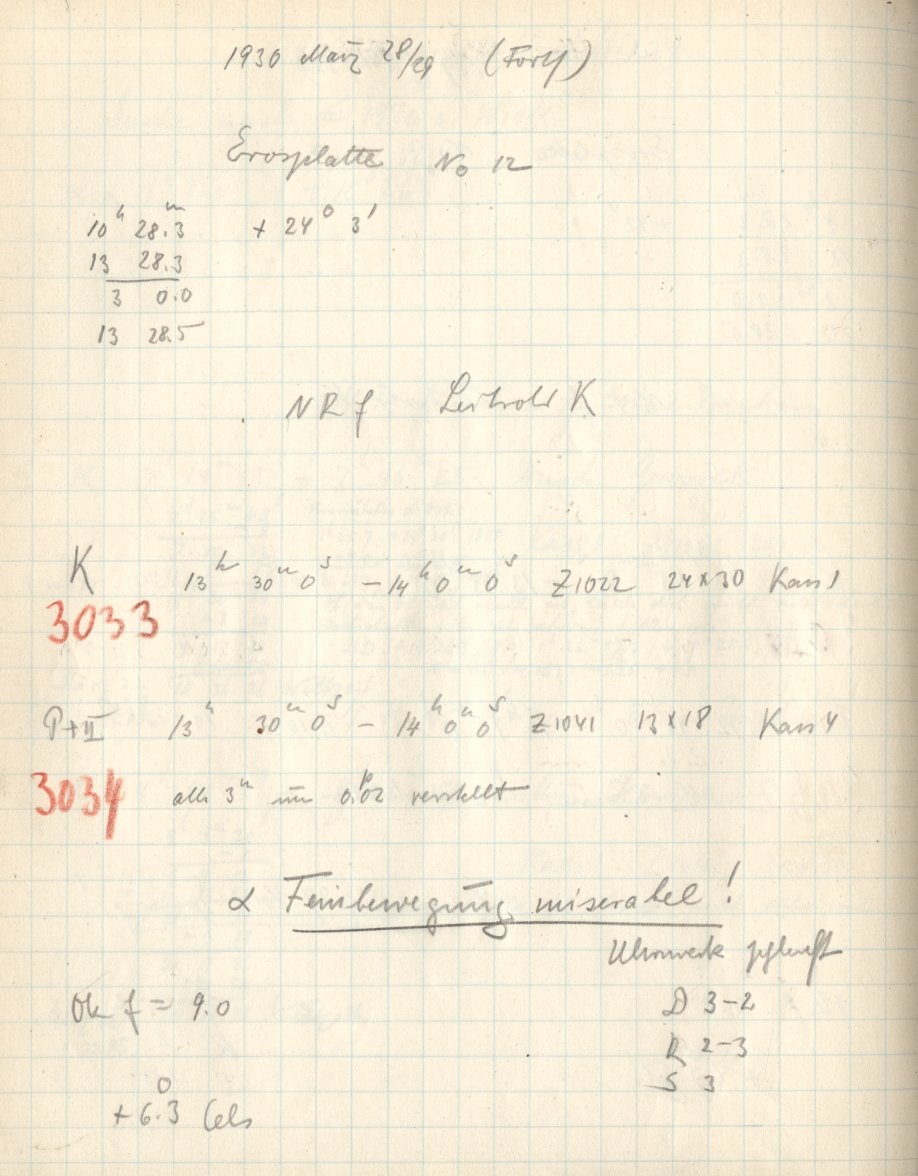 1930 März 28/29 (Forts)
Erosplatte No 12
10ʰ 28.3ᵐ + 24° 3'
13 28.3
3 0.0
13 28.5
NRf K
K 13ʰ 30ᵐ 0ˢ – 14ʰ 0ᵐ 0ˢ Z1022 24x30 Kass 1
3033
P+II 13ʰ 30ᵐ 0ˢ – 14ʰ 0ᵐ 0ˢ Z1041 13x18 Kass 4
3034 alle 3ᵐ um verstellt
α Feinbewegung miserabel!
Uhrwerk schleift
Ok f = 9.0
D 3–2
R 2–3
S 3
+ 6.3° Cels